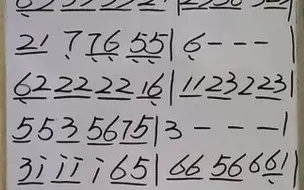 21 7 76 55 | 6 - - -
62 22 22 16 | 11 23 2 23 |
55 3 56 75 | 3 - - - |
3i i i i 65 | 66 56 661 |